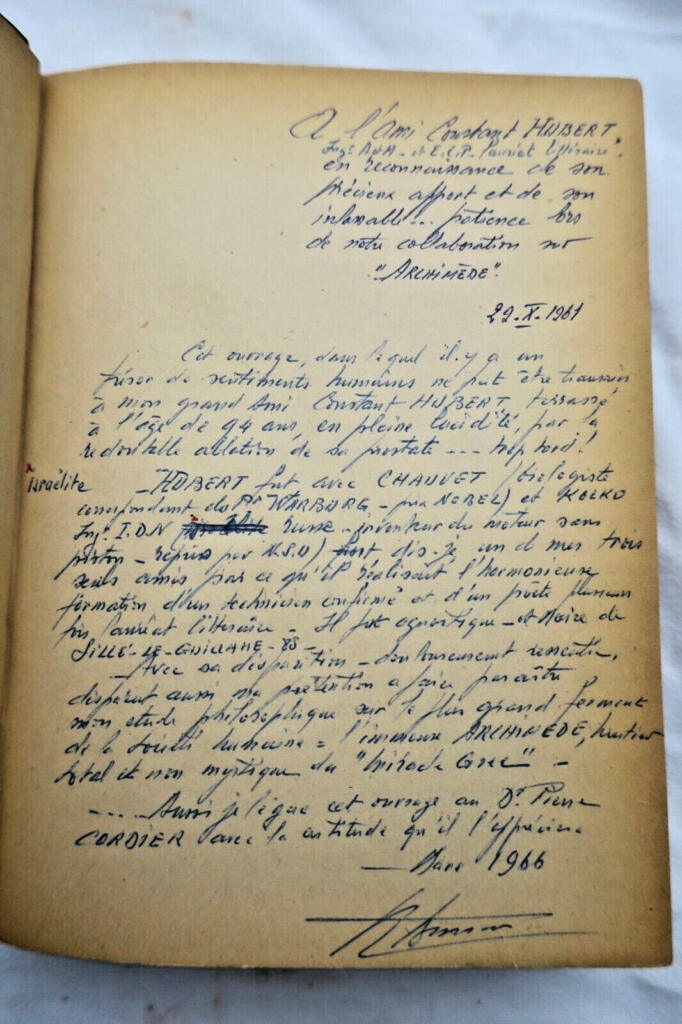 A l'Ami Constant HUBERT,
Ingr A&M - et E.C.P. Lauréat littéraire.
en reconnaissance de son
précieux apport et de son
inlassable... patience lors
de notre collaboration sur
"ARCHIMÈDE".
22-X-1961
Cet ouvrage, dans lequel il y a un
trésor de sentiments humains ne put être transmis
à mon grand Ami Constant HUBERT, terrassé
à l'âge de 94 ans, en pleine lucidité, par la
redoutable ablation de sa prostate --- trop tard!
Israélite
-HUBERT fut avec CHAUVET (biologiste
correspondant du Pr WARBURG - prix NOBEL) et KOLKO
Ingr I.D.N russe - inventeur du moteur sans
piston - repris par N.S.U) dis-je un de mes trois
seuls amis par ce qu'il réalisait l'harmonieuse
formation d'un technicien confirmé et d'un poète plusieurs
fois lauréat littéraire - Il fut agnostique - et Maire de
SILLÉ-LE-GUILLAUME
-Avec sa disparition - douloureusement ressentie,
disparut aussi ma prétention à faire paraître
mon étude philosophique sur le plus grand ferment
de la société humaine = l'immense ARCHIMÈDE, héritier
total et non mystique du "Miracle Grec" -
---- Aussi je lègue cet ouvrage au Dr Pierre
CORDIER avec la certitude qu'il l'appréciera
- Mars 1966